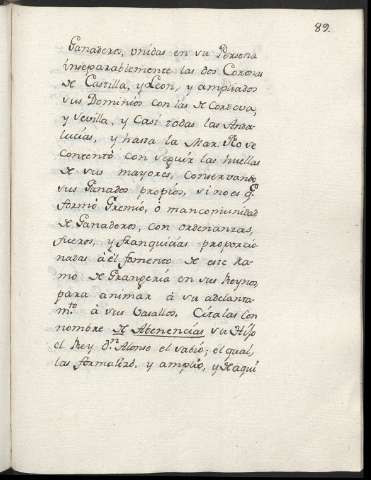 89.
Ganadero, unidas en su Persona
inseparablemente las dos Coronas
de Castilla, y Leon, y ampliados
sus Dominios con las de Cordova,
y Sevilla, y Casi todas las Anda
lucias, y hasta la Mar. No se
contentó con seguir las huellas
de sus mayores, conservando
sus Ganados propios, si no es q.e
formó Gremio, ó mancomunidad
de Ganaderos, con ordenanzas,
fueros, y franquicias proporcio
nadas á el fomento de este Ra
mo de Grangería en sus Reynos,
para animar á su adelanta
m.to á sus Vasallos. Citalas con
nombre de Abenencias su Hijo
el Rey d.n Alonso el sabio; el qual,
las formalizó, y amplió, y de aqui